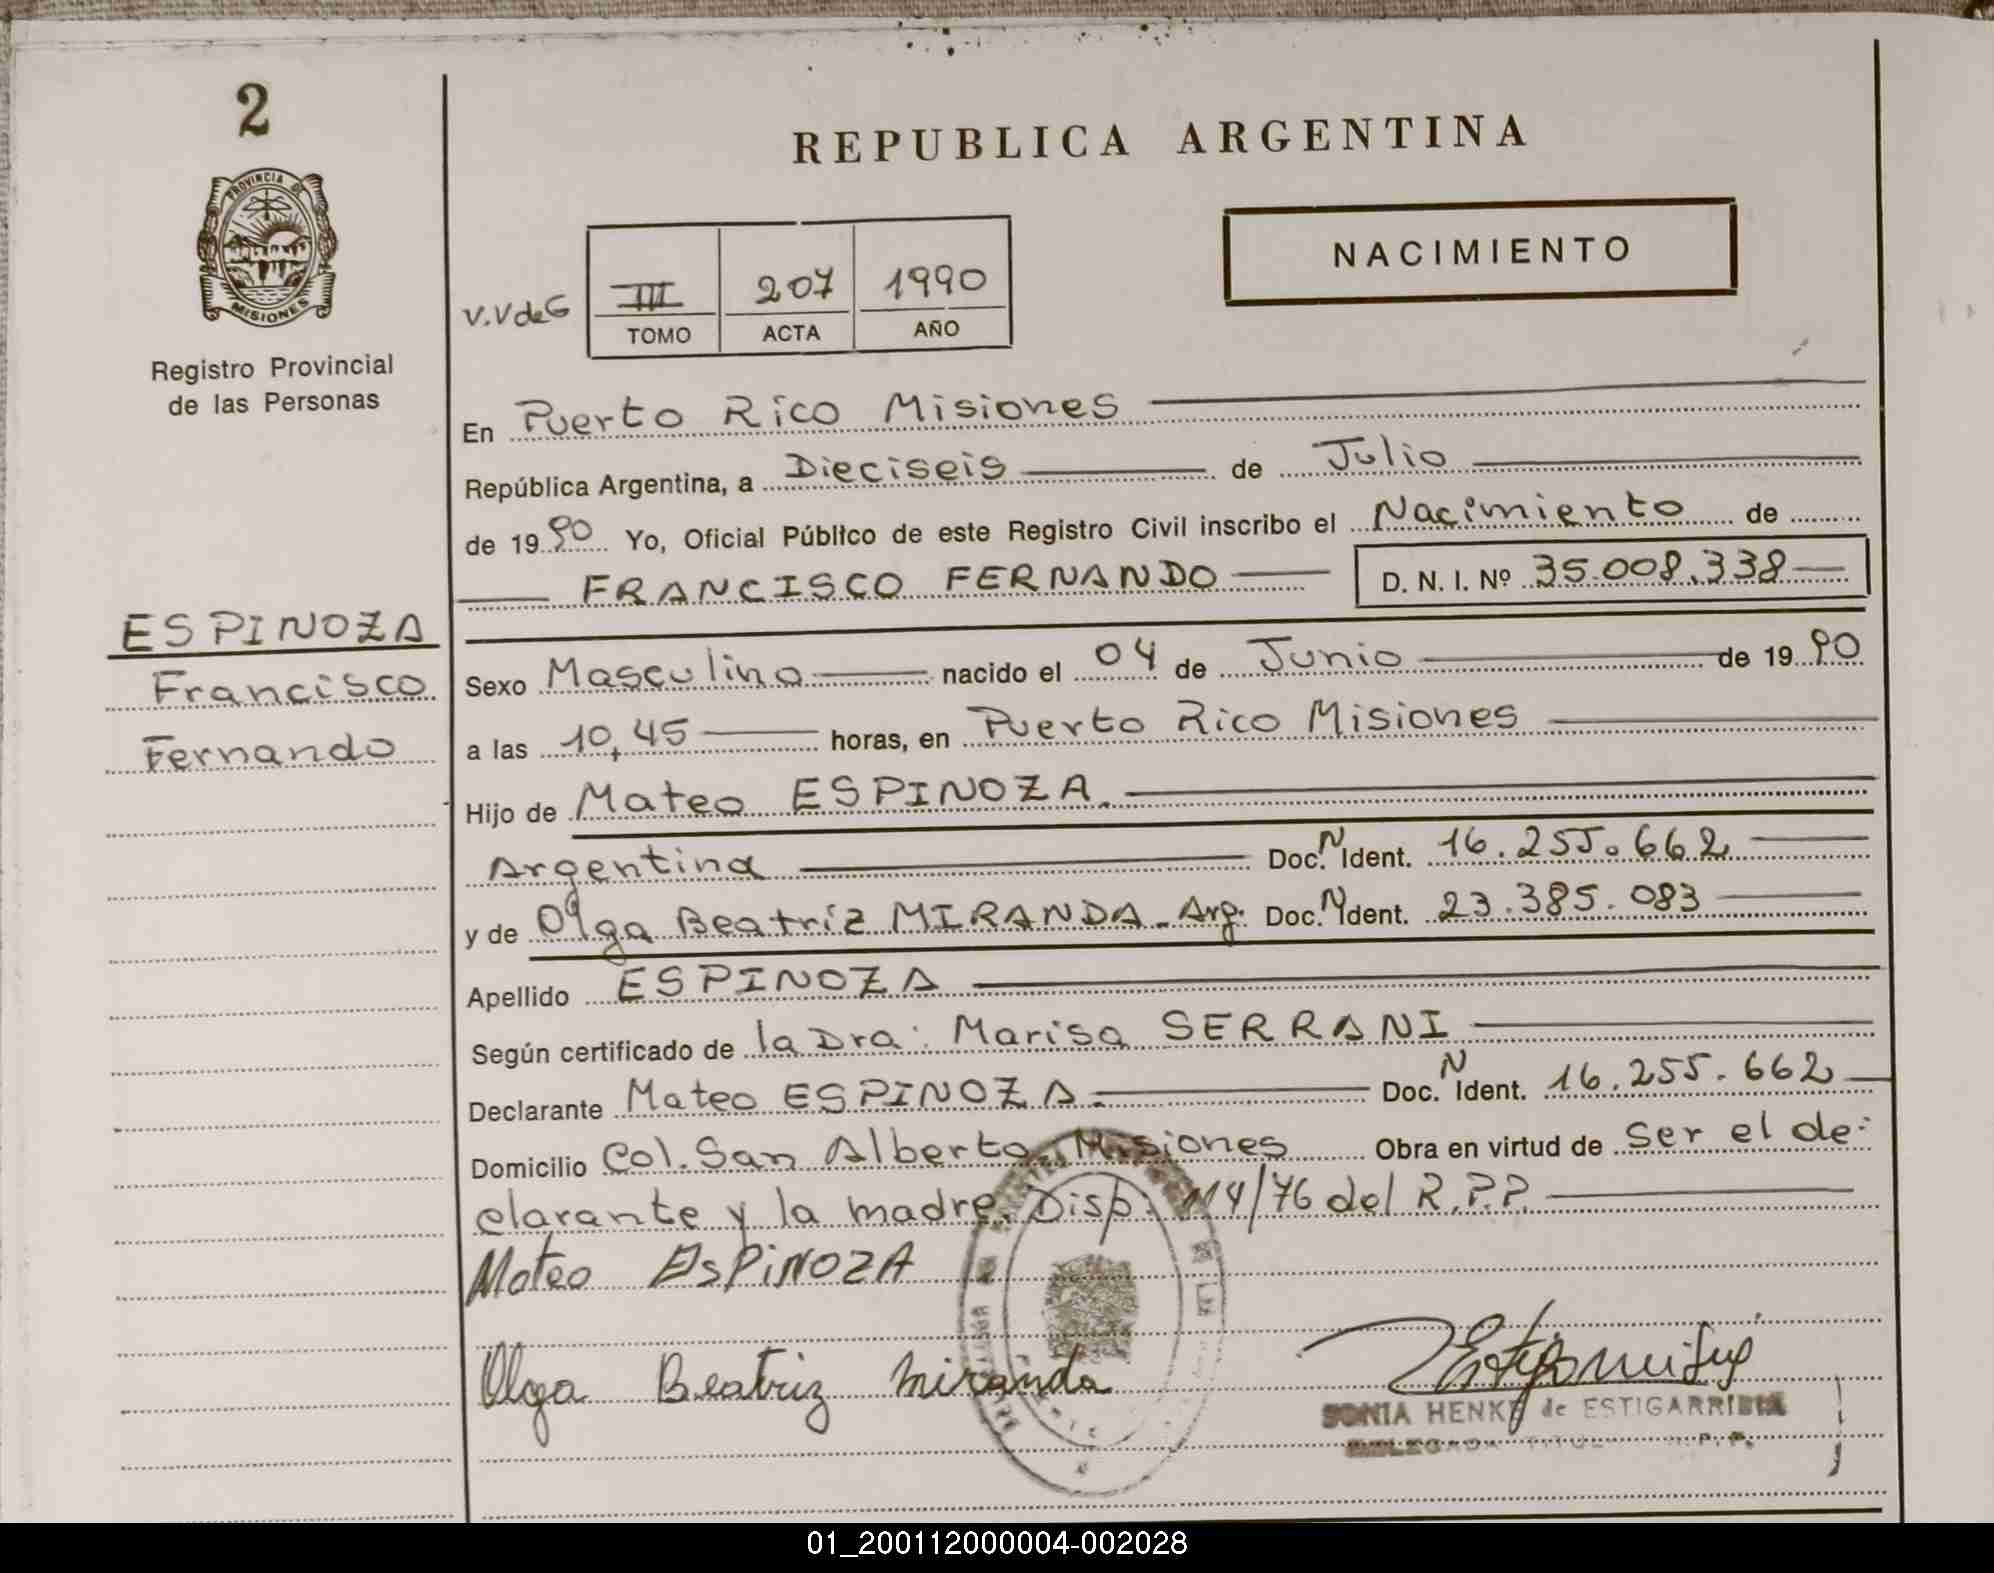 2
PROVINCIA DE
MISIONES
Registro Provincial
de las Personas
ESPINOZA
Francisco
Fernando
REPUBLICA ARGENTINA
NACIMIENTO
V.V de G
III 207 1990
TOMO ACTA AÑO
En Puerto Rico Misiones
República Argentina, a Dieciseis de Julio
de 1990 Yo, Oficial Público de este Registro Civil inscribo el Nacimiento de
FRANCISCO FERNANDO D. N. I. Nº 35.008.338
Sexo Masculino nacido el 04 de Junio de 1990
a las 10,45 horas, en Puerto Rico Misiones
Hijo de Mateo ESPINOZA.
Argentina Doc. N Ident. 16.255.662
y de Olga Beatríz MIRANDA - Arg. Doc. N Ident. 23.385.083
Apellido ESPINOZA
Según certificado de la Dra: Marisa SERRANI
Declarante Mateo ESPINOZA. Doc. N Ident. 16.255.662
Domicilio Col. San Alberto, Misiones Obra en virtud de ser el de-
clarante y la madre. Disp. 114/76 del R.P.P.
Mateo EsPiNOZA
Olga Beatriz Miranda
SONIA HENKE de ESTIGARRIBIA
01_200112000004-002028